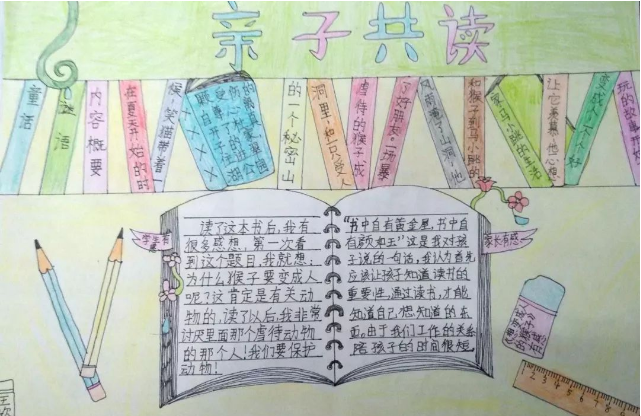 亲子共读
童话
迷语
内容概要
在夏天开始的时
候,笑猫带着一
的一个秘密山
洞里,和一只受人
虐待的猴子成
了好朋友。一场暴
风雨淹了山洞,他
和猴子到马小跳的
家,马小跳的
让它
变成个
玩的故事
学生有感
读了这本书后,我有
很多感想,第一次看
到这个题目,我就想:
为什么猴子要变成人
呢?这肯定是有关动
物的,读了以后,我非常
讨厌里面那个虐待动物
的那个人!我们要保护
动物!
家长有感
“书中自有黄金屋,书中自
有颜如玉”这是我对孩
子说的一句话,我认为首先
应该让孩子知道读书的
重要性,通过读书,才能
知道自己想知道的东
西,由于我们工作的关系
陪孩子的时间很短,
1 2 3 4 5 6 7 8